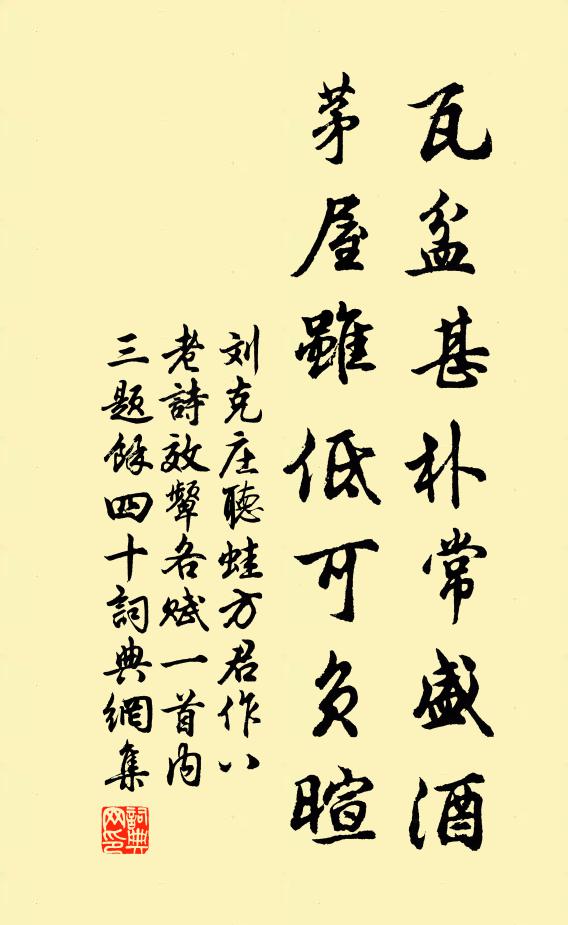 瓦盆甚朴常盛酒
茅屋雖低可負暄
刘克庄聽蛙方君作八
老詩效颦各赋一首内
三题餘四十詞典網集
詞典
网印